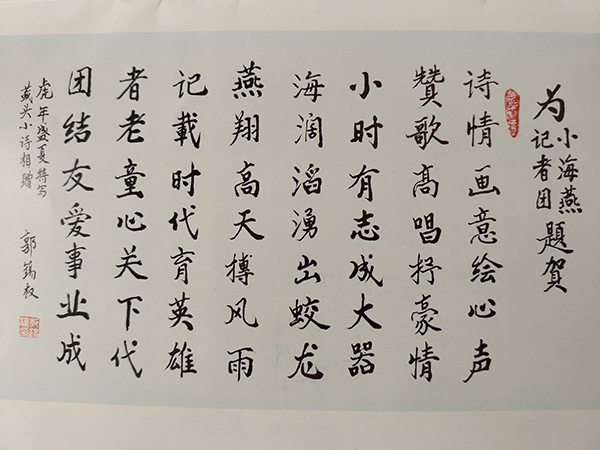 为小海燕记者团题贺
诗情画意绘心声
赞歌高唱抒豪情
小时有志成大器
海阔滔涌出蛟龙
燕翔高天搏风雨
记载时代育英雄
者老童心关下代
团结友爱事业成
虎年盛夏特写
藏头小诗相赠
郭锡权